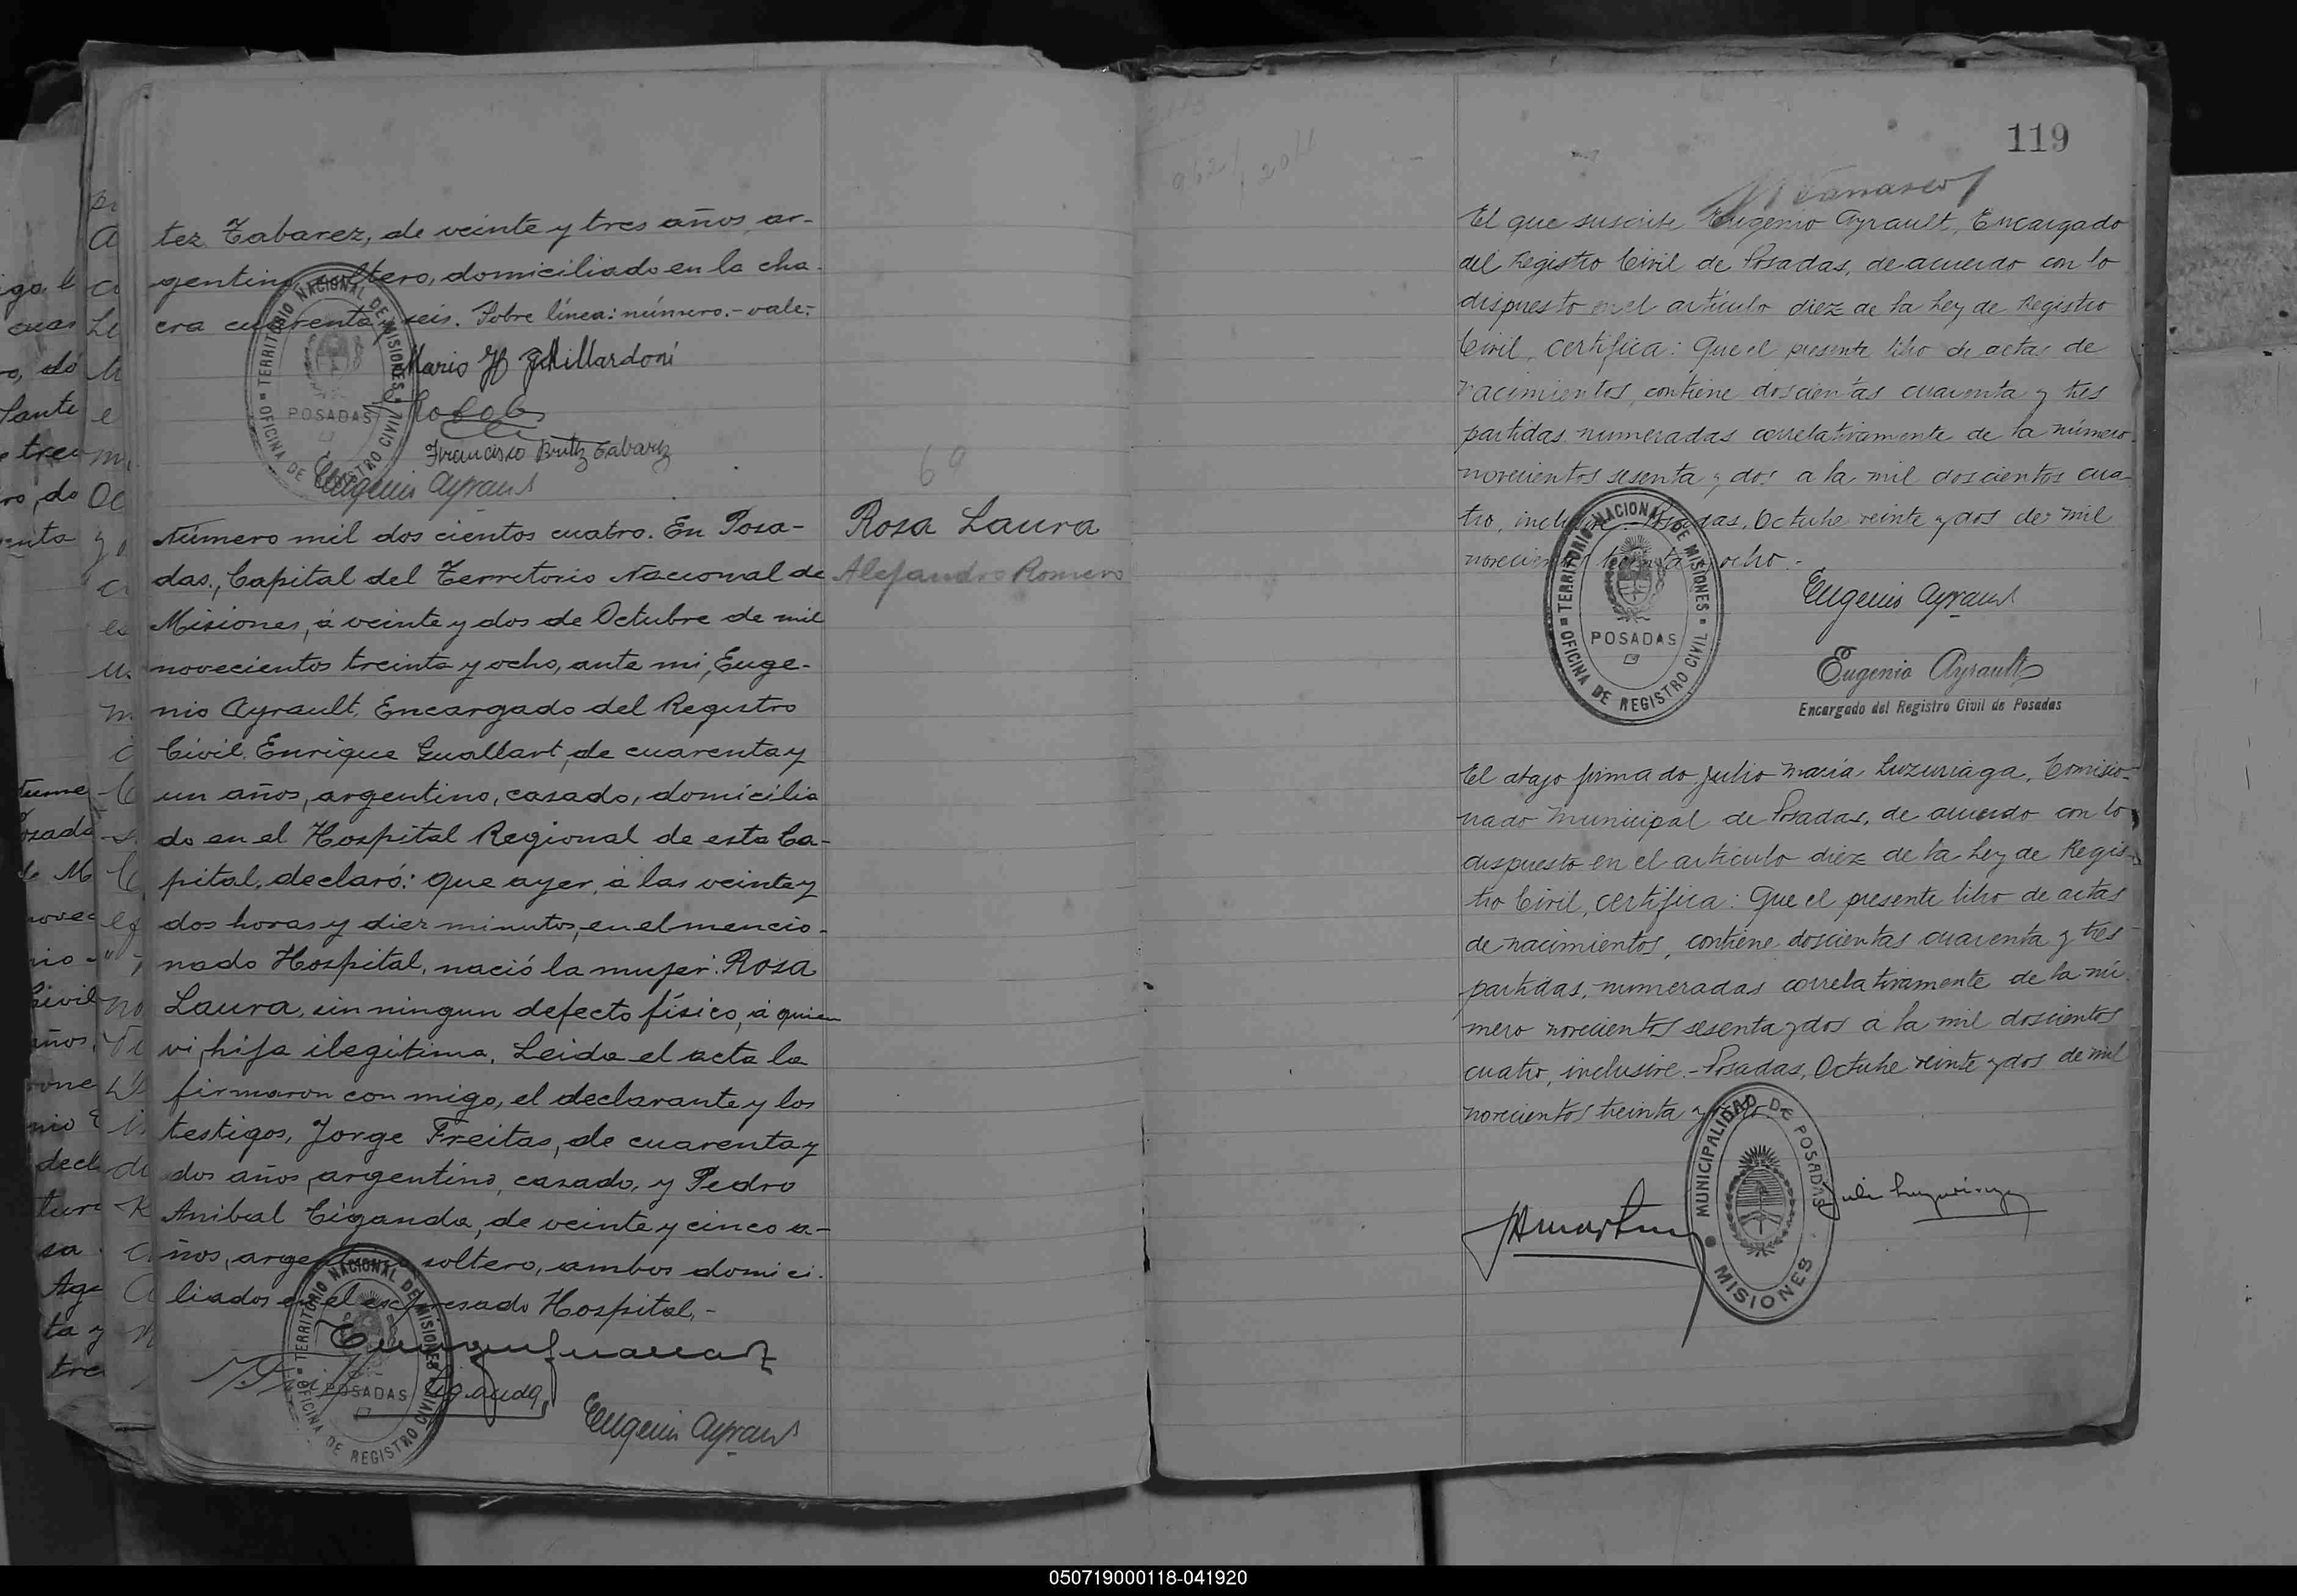 tez Tabarez, de veinte y tres años, ar-
gentino, soltero, domiciliado en la cha-
cra cuarenta y seis. Sobre línea: número.- vale.-
TERRITORIO NACIONAL DE MISIONES
OFICINA DE REGISTRO CIVIL
POSADAS
Francisco Britz Tabarez
Eugenio Ayrault
69
Número mil dos cientos cuatro. En Posa-
das, Capital del Territorio Nacional de
Misiones, á veinte y dos de Octubre de mil
novecientos treinta y ocho, ante mi, Euge-
nio Ayrault, Encargado del Registro
Civil, Enrique Guallart, de cuarenta y
un años, argentino, casado, domicilia
do en el Hospital Regional de esta Ca-
pital, declaró: que ayer, á las veinte y
dos horas y diez minutos, en el mencio-
nado Hospital, nació la mujer: Rosa
Laura, sin ningun defecto físico, á quien
vi, hija ilegítima. Leida el acta la
firmaron con migo, el declarante y los
testigos, Jorge Freitas, de cuarenta y
dos años, argentino, casado, y Pedro
Anibal Ciganda, de veinte y cinco a-
ños, argentino soltero, ambos domici-
liados en el expresado Hospital.-
TERRITORIO NACIONAL DE MISIONES
OFICINA DE REGISTRO CIVIL
POSADAS
Ciganda
Eugenio Ayrault
Rosa Laura
Alejandro Romero
119
El que suscribe Eugenio Ayrault, Encargado
del Registro Civil de Posadas, de acuerdo con lo
dispuesto en el artículo diez de la Ley de Registro
Civil, certifica: Que el presente libro de actas de
nacimientos, contiene doscientas cuarenta y tres
partidas numeradas correlativamente de la número
novecientos sesenta y dos a la mil doscientos cua-
tro, inclusive.- Posadas, Octubre veinte y dos de mil
novecientos treinta y ocho.-
TERRITORIO NACIONAL DE MISIONES
OFICINA DE REGISTRO CIVIL
POSADAS
Eugenio Ayrault
Eugenio Ayrault
Encargado del Registro Civil de Posadas
El abajo firmado, Julio María Luzuriaga, Comisio-
nado Municipal de Posadas, de acuerdo con lo
dispuesto en el artículo diez de la Ley de Regis-
tro Civil, certifica: Que el presente libro de actas
de nacimientos, contiene doscientas cuarenta y tres
partidas, numeradas correlativamente de la nú-
mero novecientos sesenta y dos a la mil doscientos
cuatro, inclusive.- Posadas, Octubre veinte y dos de mil
novecientos treinta y ocho
MUNICIPALIDAD DE POSADAS
MISIONES
Julio Luzuriaga
050719000118-041920